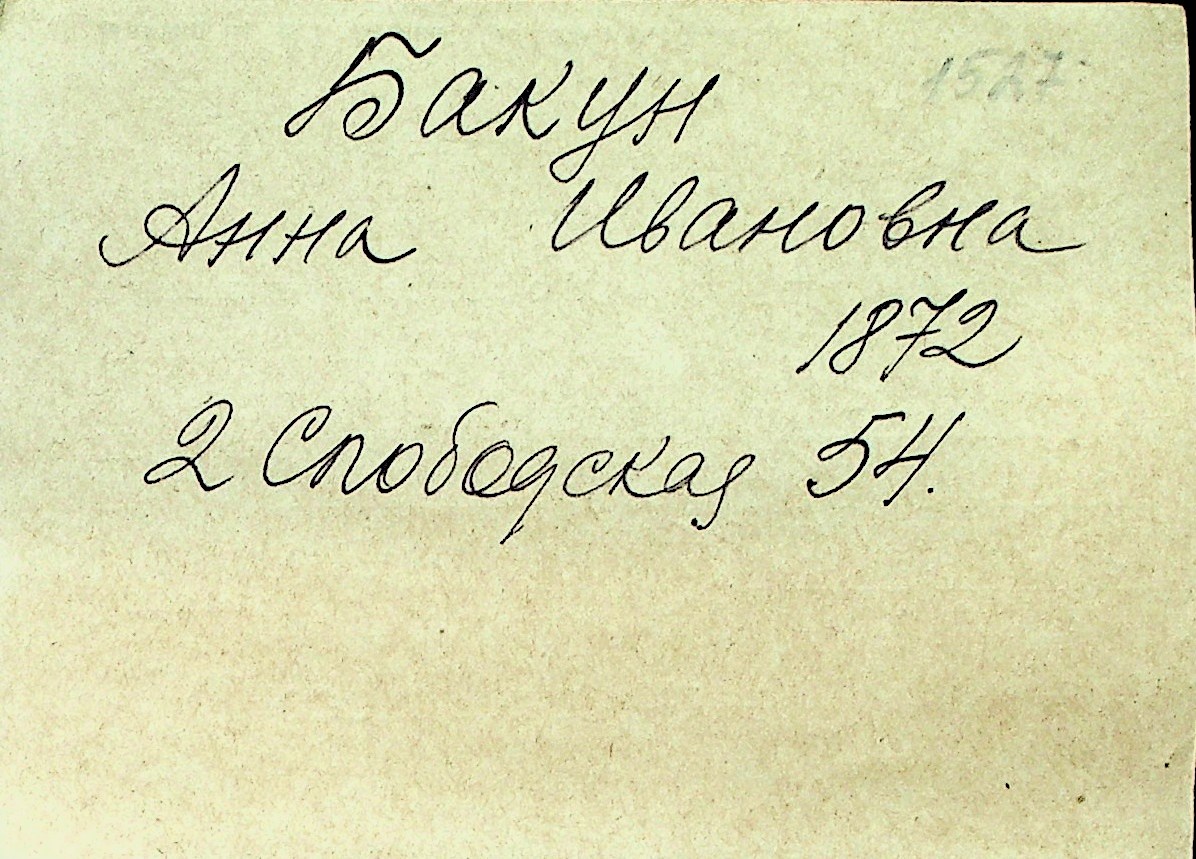 1527
Бакун
Анна Ивановна
1872
2 Слободская 54.